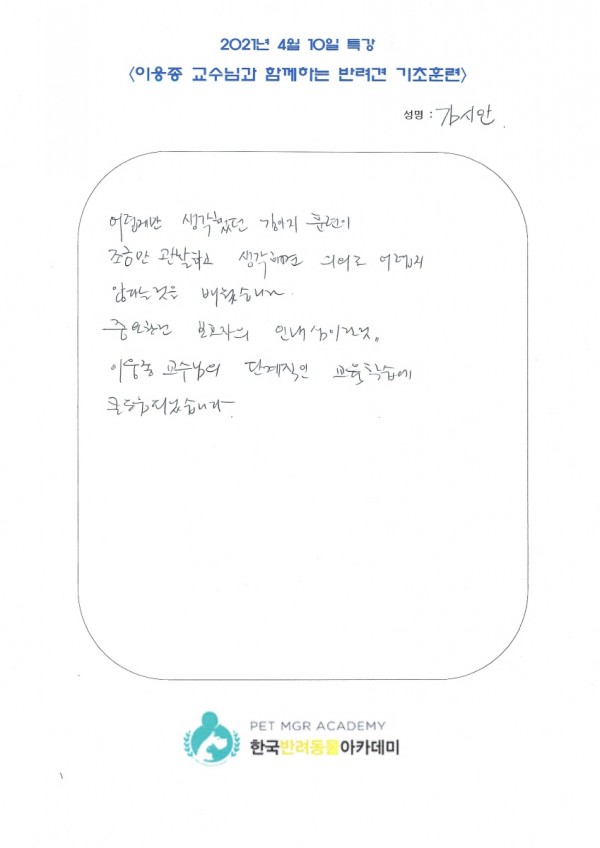 2021년 4월 10일 특강
<이웅종 교수님과 함께하는 반려견 기초훈련>
성명 : 김시안
어렵게만 생각했던 강아지 훈련이
조금만 관찰하고 생각하면 의외로 어렵지
않다는것을 배웠습니다.
중요한건 보호자의 인내심이란것.
이웅종 교수님의 단계적인 교육학습에
큰 도움되었습니다
PET MGR ACADEMY
한국반려동물아카데미